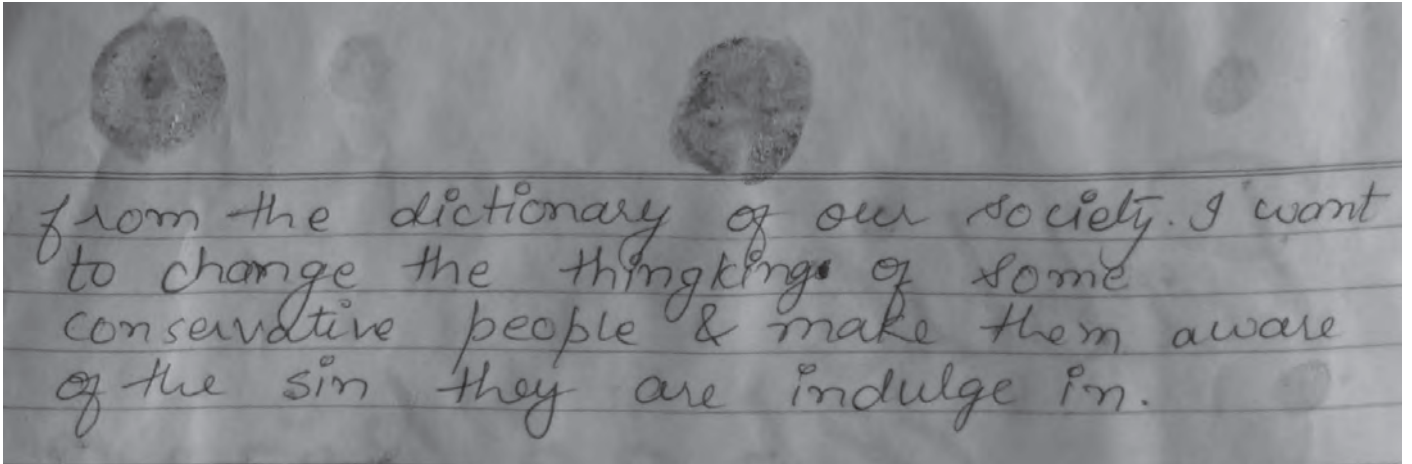 from the dictionary of our society. I want
to change the thingking of some
conservative people & make them aware
of the sin they are indulge in.